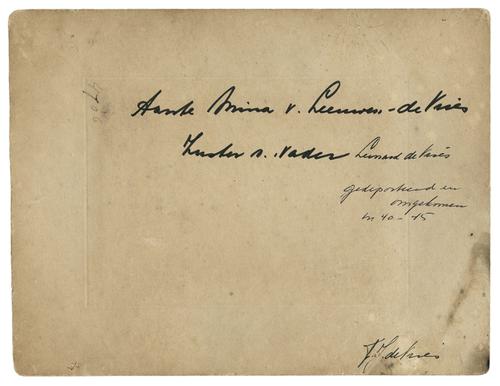 Aante Mina v. Leeuwen-de Vries
Zuster v. Vader Leonard de Vries
gedeporteerd en
omgekomen
in 40-45
de Vries